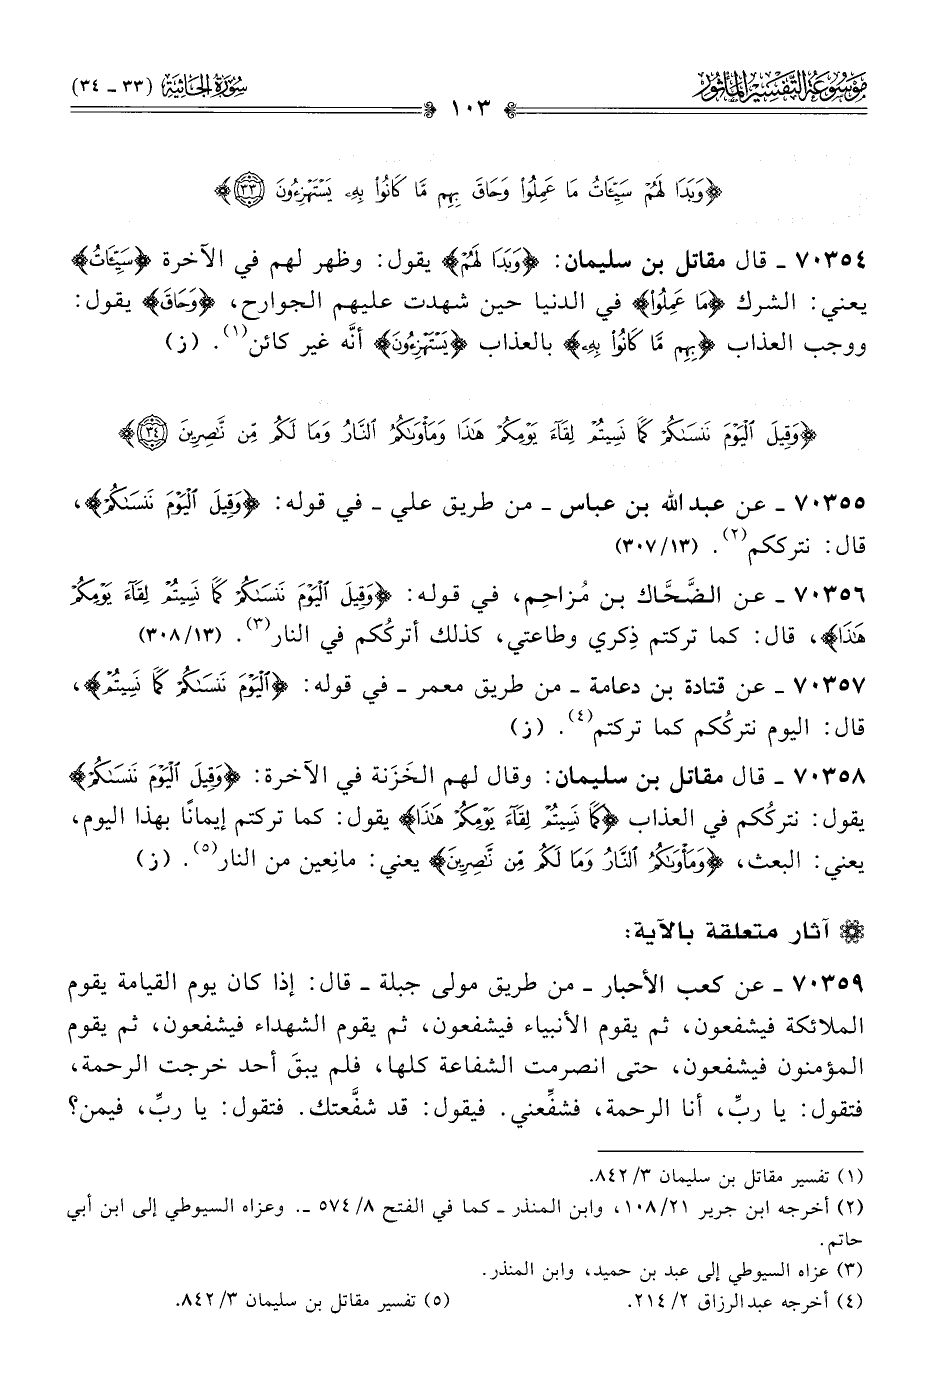 موسوعة التفسير المأثور
سورة الجاثية (٣٣ - ٣٤)
١٠٣
﴿وَبَدَا لَهُمْ سَيِّئَاتُ مَا عَمِلُوا۟ وَحَاقَ بِهِم مَّا كَانُوا۟ بِهِۦ يَسْتَهْزِءُونَ ٣٣﴾
٧٠٣٥٤ ـ قال مقاتل بن سليمان: ﴿وَبَدَا لَهُمْ﴾ يقول: وظهر لهم في الآخرة ﴿سَيِّئَاتُ﴾
يعني: الشرك ﴿مَا عَمِلُوا۟﴾ في الدنيا حين شهدت عليهم الجوارح، ﴿وَحَاقَ﴾ يقول:
ووجب العذاب ﴿بِهِم مَّا كَانُوا۟ بِهِۦ﴾ بالعذاب ﴿يَسْتَهْزِءُونَ﴾ أنَّه غير كائن(١). (ز)
﴿وَقِيلَ ٱلْيَوْمَ نَنسَىٰكُمْ كَمَا نَسِيتُمْ لِقَآءَ يَوْمِكُمْ هَـٰذَا وَمَأْوَىٰكُمُ ٱلنَّارُ وَمَا لَكُم مِّن نَّـٰصِرِينَ ٣٤﴾
٧٠٣٥٥ ـ عن عبدالله بن عباس ـ من طريق علي ـ في قوله: ﴿وَقِيلَ ٱلْيَوْمَ نَنسَىٰكُمْ﴾،
قال: نترككم(٢). (٣٠٧/١٣)
٧٠٣٥٦ ـ عن الضَّحَّاك بن مُزاحِم، في قوله: ﴿وَقِيلَ ٱلْيَوْمَ نَنسَىٰكُمْ كَمَا نَسِيتُمْ لِقَآءَ يَوْمِكُمْ
هَـٰذَا﴾، قال: كما تركتم ذِكري وطاعتي، كذلك أتركُكم في النار(٣). (٣٠٨/١٣)
٧٠٣٥٧ ـ عن قتادة بن دعامة ـ من طريق معمر ـ في قوله: ﴿ٱلْيَوْمَ نَنسَىٰكُمْ كَمَا نَسِيتُمْ﴾،
قال: اليوم نتركُكم كما تركتم(٤). (ز)
٧٠٣٥٨ ـ قال مقاتل بن سليمان: وقال لهم الخَزَنة في الآخرة: ﴿وَقِيلَ ٱلْيَوْمَ نَنسَىٰكُمْ﴾
يقول: نتركُكم في العذاب ﴿كَمَا نَسِيتُمْ لِقَآءَ يَوْمِكُمْ هَـٰذَا﴾ يقول: كما تركتم إيمانًا بهذا اليوم،
يعني: البعث، ﴿وَمَأْوَىٰكُمُ ٱلنَّارُ وَمَا لَكُم مِّن نَّـٰصِرِينَ﴾ يعني: مانِعين من النار(٥). (ز)
آثار متعلقة بالآية:
٧٠٣٥٩ ـ عن كعب الأحبار ـ من طريق مولى جبلة ـ قال: إذا كان يوم القيامة يقوم
الملائكة فيشفعون، ثم يقوم الأنبياء فيشفعون، ثم يقوم الشهداء فيشفعون، ثم يقوم
المؤمنون فيشفعون، حتى انصرمت الشفاعة كلها، فلم يبقَ أحد خرجت الرحمة،
فتقول: يا ربِّ، أنا الرحمة، فشفِّعني. فيقول: قد شفَّعتك. فتقول: يا ربِّ، فيمن؟
(١) تفسير مقاتل بن سليمان ٣/ ٨٤٢.
(٢) أخرجه ابن جرير ٢١/ ١٠٨، وابن المنذر ـ كما في الفتح ٨/ ٥٧٤ ـ. وعزاه السيوطي إلى ابن أبي
حاتم.
(٣) عزاه السيوطي إلى عبد بن حميد، وابن المنذر.
(٤) أخرجه عبدالرزاق ٢/ ٢١٤.
(٥) تفسير مقاتل بن سليمان ٣/ ٨٤٢.